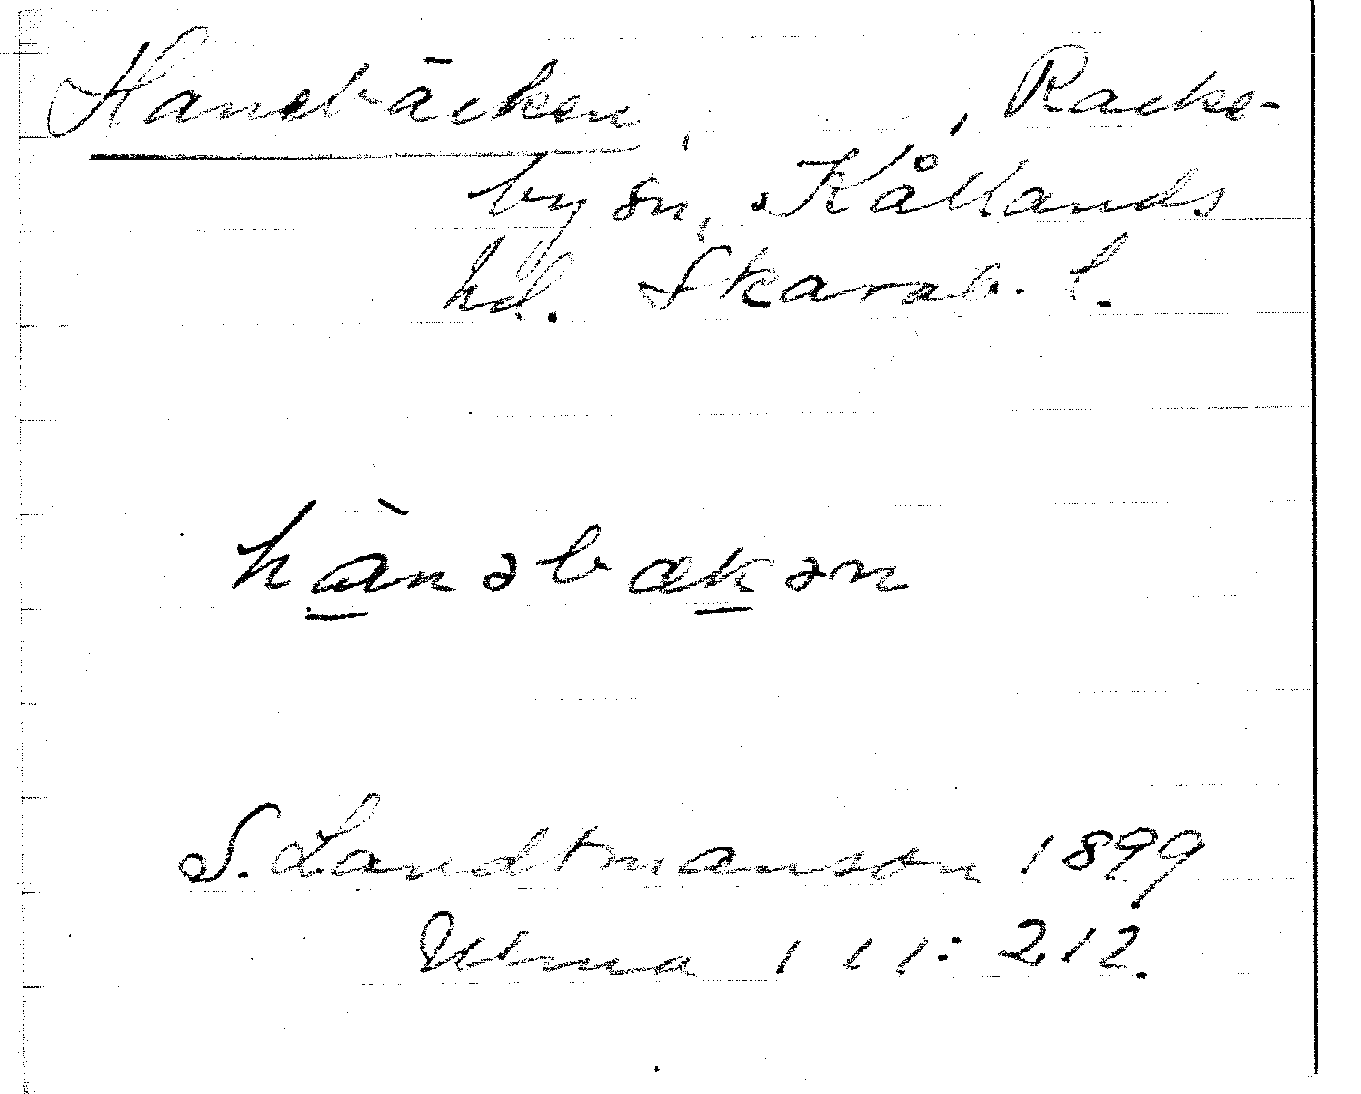 Hanebäcken, , Racke-
by sn, Kållands
hd. Skarab. l.
hànəbækən
S. Landtmanson 1899
Ulma 111: 212.